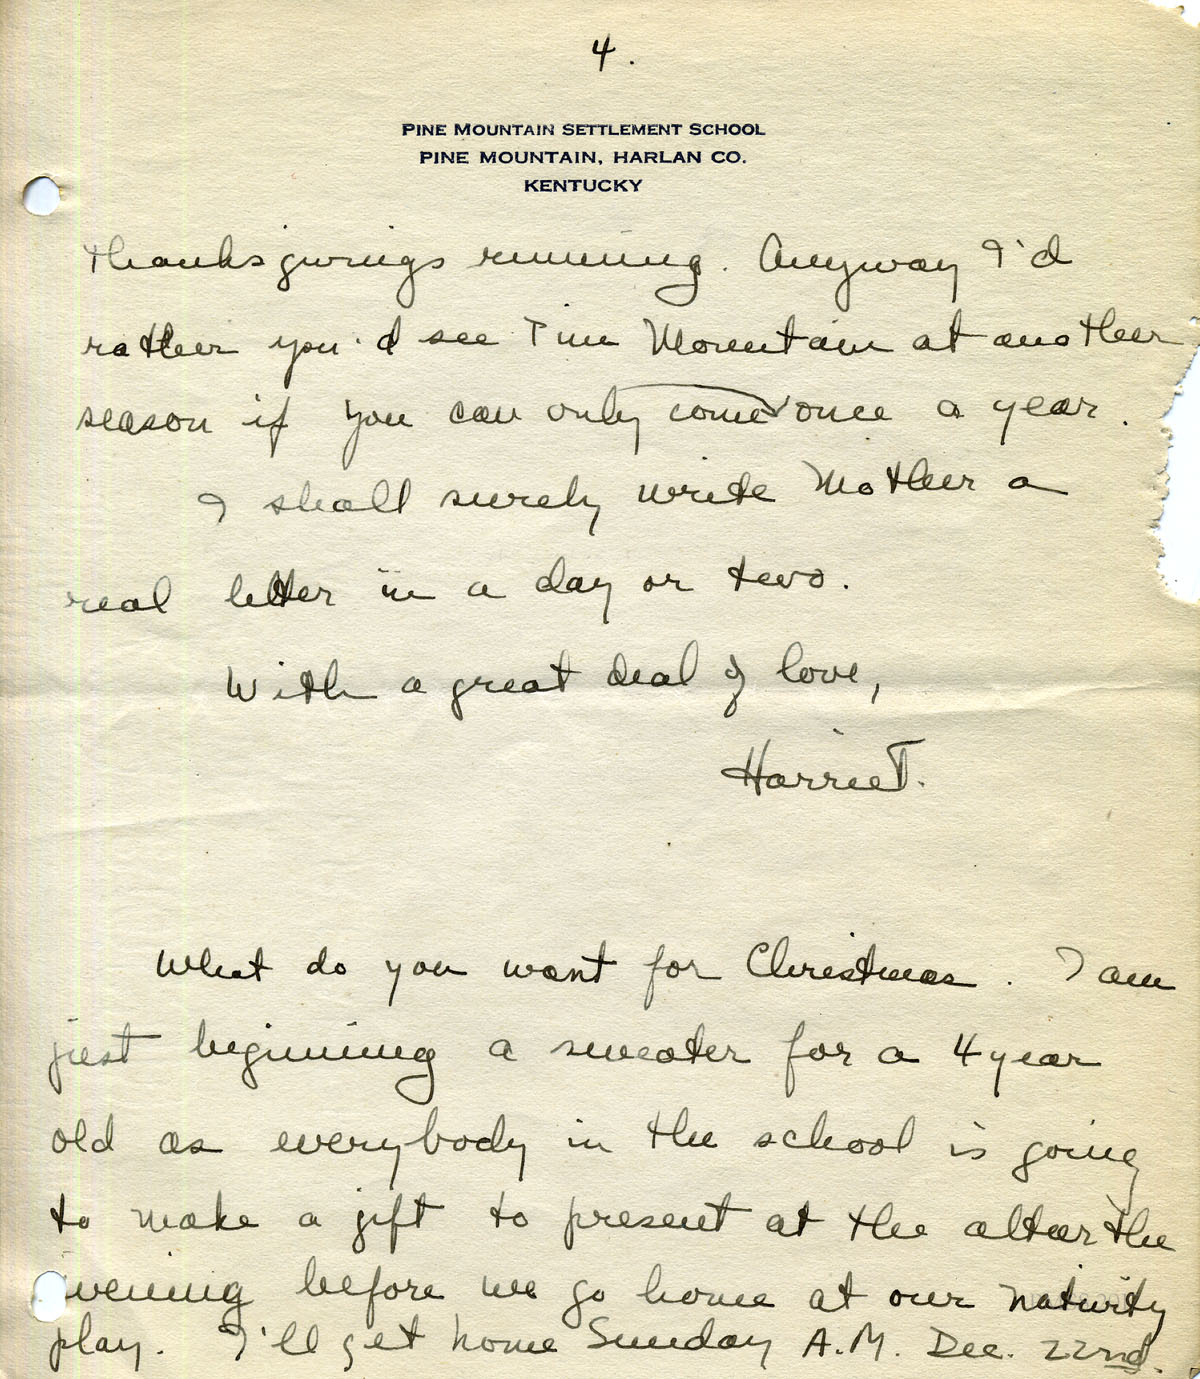 4.
PINE MOUNTAIN SETTLEMENT SCHOOL
PINE MOUNTAIN, HARLAN CO.
KENTUCKY
thanksgivings running. Anyway I'd
rather you'd see Pine Mountain at another
season if you can only come once a year.
I shall surely write Mother a
real letter in a day or two.
With a great deal of love,
Harriet.
What do you want for Christmas. I am
just beginning a sweater for a 4 year
old as everybody in the school is going
to make a gift to present at the altar the
evening before we go home at our nativity
play. I'll get home Sunday A.M. Dec. 22nd.